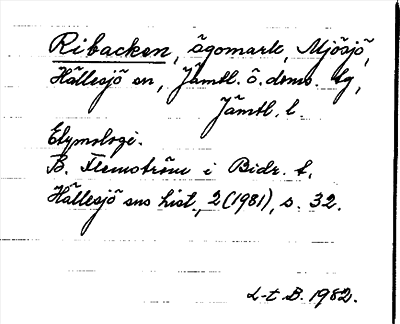 Ribacken, ägomark, Mjösjö,
Hällesjö sn, Jämtl. ö. doms. tg,
Jämtl. l.
Etymologi.
B. Flemström i Bidr. t.
Hällesjö sns hist., 2 (1981), s. 32.
L-t B. 1982.